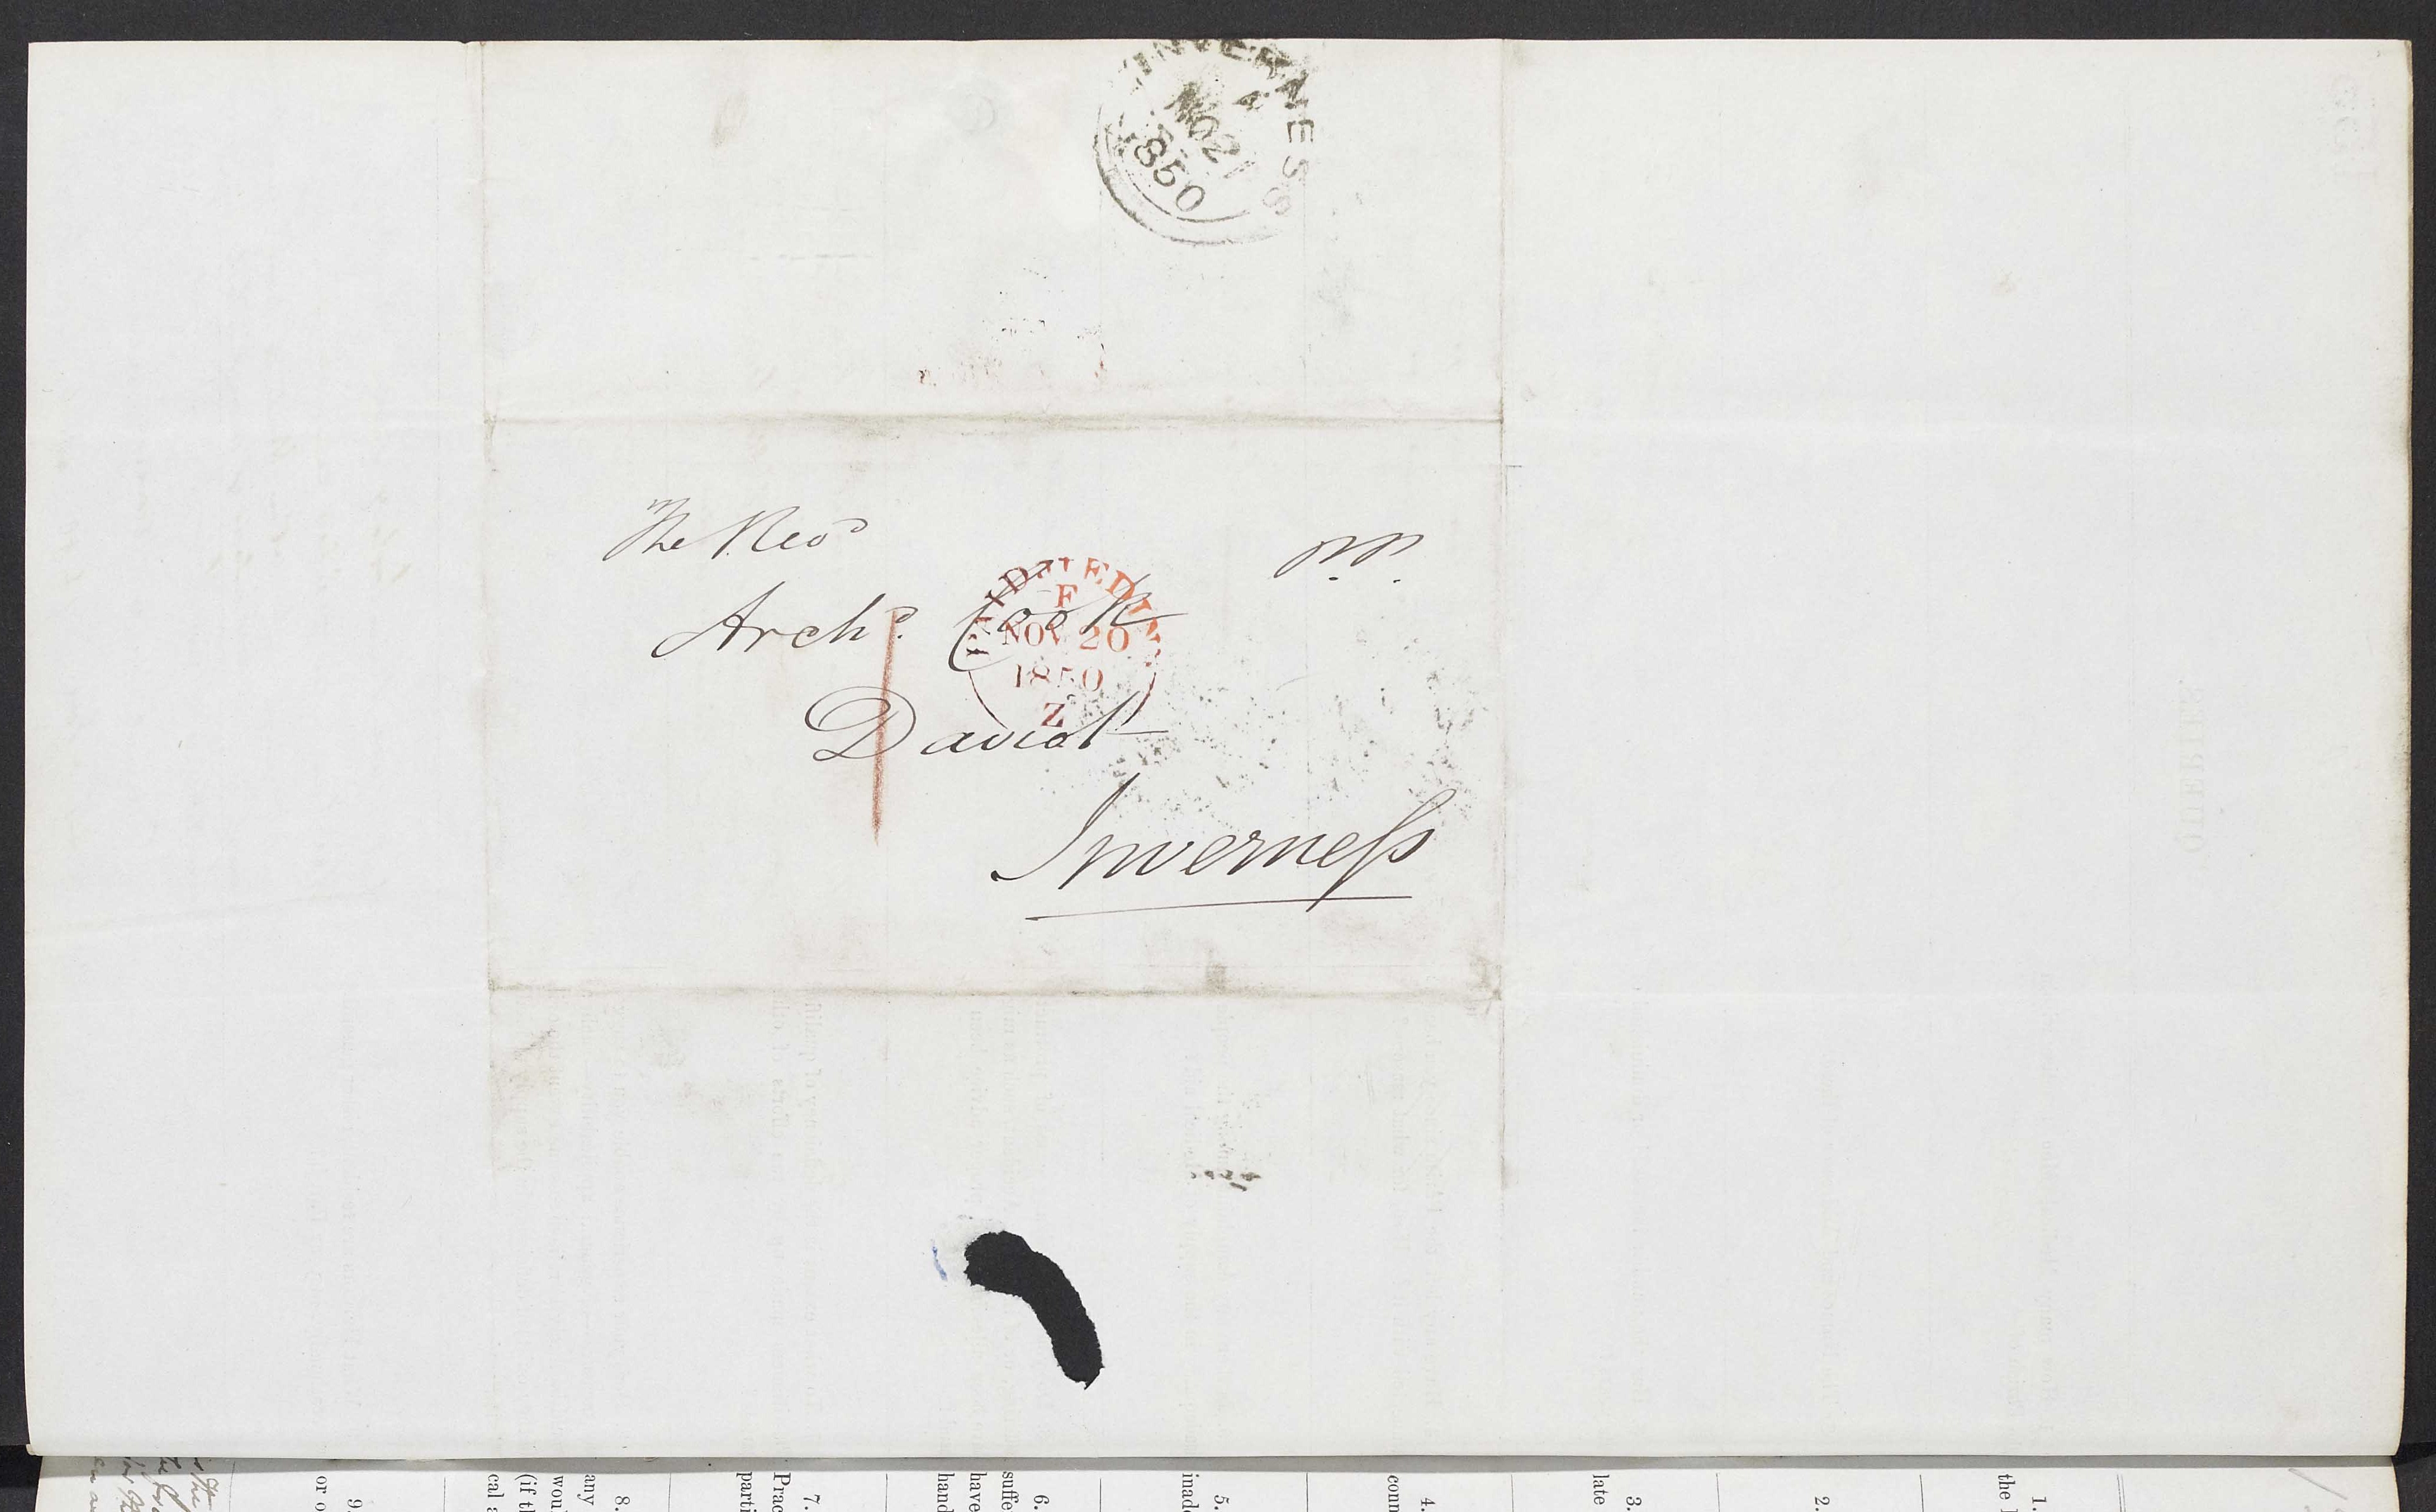 INVERNESS
A
NO 21
1850
The Revd
P.P.
Archd. Cook
PAID AT EDINR
F
NOV 20
1850
Z
Daviot
Inverneſs
1.
the
2.
3.
late
4.
conn
5.
inad
6.
suffe
have
hand
7.
Prac
parti
8.
any
wou
(if th
cal a
9.
or o